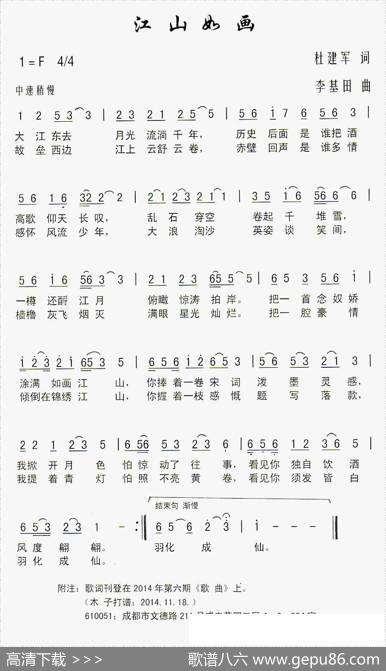 江山如画
1=F 4/4
杜建军 词
中速稍慢
李基田 曲
1 2 5 3 3 | 2 3 2 1 2 5 5 | 5 6 1 7 6 5 6 3 |
大江东去 月光流淌千年， 历史后面是谁把酒
故垒西边 江上云舒云卷， 赤壁回声是谁多情
5 6 1 6 3 2 2 2 | 2 1 2 3 2 1 1 | 3 5 1 6 5 6 5 |
高歌仰天长叹， 乱石穿空 卷起千堆雪，
感怀风流少年， 大浪淘沙 英姿谈笑间，
5 6 1 6 5 6 3 3 | 2 3 2 1 2 3 6 5 5 | 6 5 3 5 6 2 7 6 |
一樽还酹江月 俯瞰惊涛拍岸。 把一首念奴娇
樯橹灰飞烟灭 满眼星光灿烂。 把一腔豪情
1 2 3 2 1 6 5 3 | 6 5 6 1 2 6 5 6 | 5 6 3 5 2 1 3 |
涂满如画江山， 你捧着一卷宋词泼墨灵感，
倾倒在锦绣江山， 你握着一枝感慨题写落款，
2 2 1 2 3 5 | 6 5 6 5 3 2 3 | 6 5 6 1 2 3 6 5 |
我掀开月色怕惊动了往事，看见你独自饮酒
我提着青灯怕照不亮黄卷，看见你须发皆白
结束句 渐慢
6 5 3 2 3 1 - :| 6 5 6 2 3 | 1 - - - ‖
风度翩翩。 羽化成仙。
羽化成仙。
附注：歌词刊登在2014年第六期《歌曲》上。
（木子打谱：2014.11.18.）
610051：成都市文德路21
高清下载 >>>
歌谱八六 www.gepu86.com